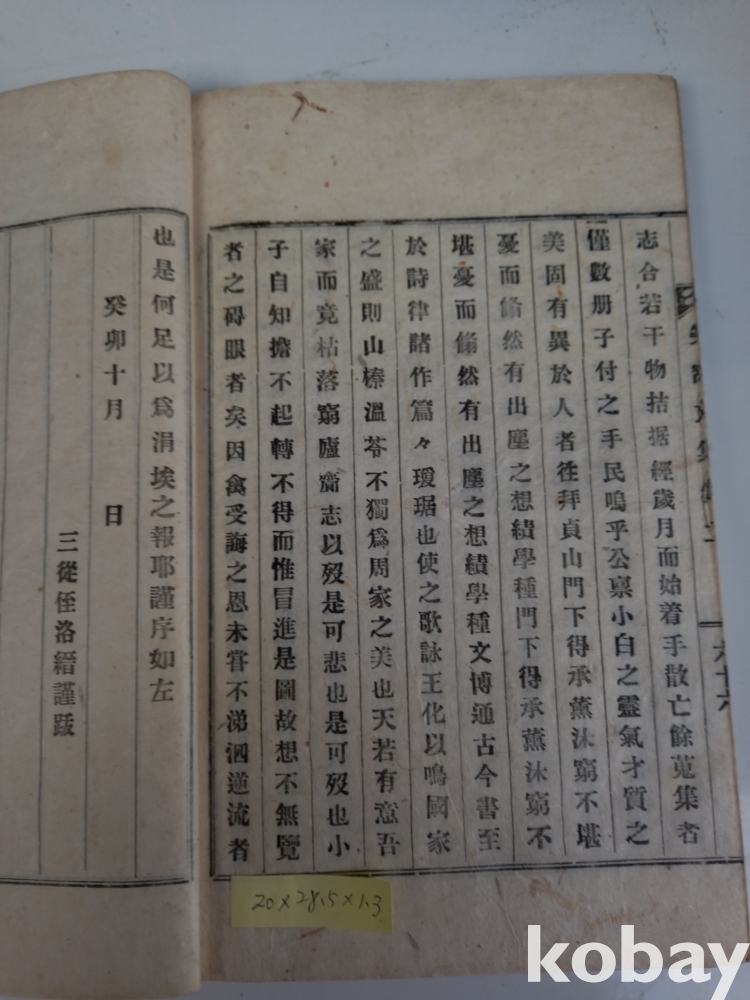 六十六
志合若干物拮据經歲月而始着手散亡餘蒐集者
僅數册子付之手民嗚乎公稟小白之靈氣才質之
美固有異於人者徃拜貞山門下得承薰沐窮不堪
憂而翛然有出塵之想績學種門下得承薰沐窮不
堪憂而翛然有出塵之想績學種文博通古今書至
於詩律諸作篇々瑷琚也使之歌詠王化以鳴國家
之盛則山榛溫苓不獨爲周家之美也天若有意吾
家而竟枯落窮廬齎志以歿是可悲也是可歿也小
子自知擔不起轉不得而惟冒進是圖故想不無覽
者之碍眼者矣因禽受誨之恩未甞不涕泗逆流者
也是何足以爲涓埃之報耶謹序如左
癸卯十月 日
三從侄洛縉謹跋
20×28.5×1.3
kobay